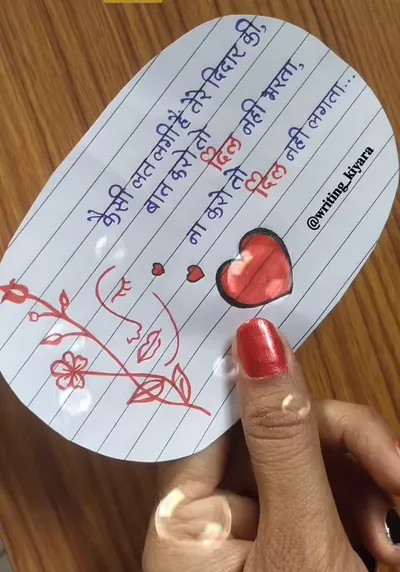 कैसी लत लगी हैं तेरे दिदार की,
बात करो तो दिल नही भरता,
ना करो तो दिल नही लगता...
@writing_kiyara